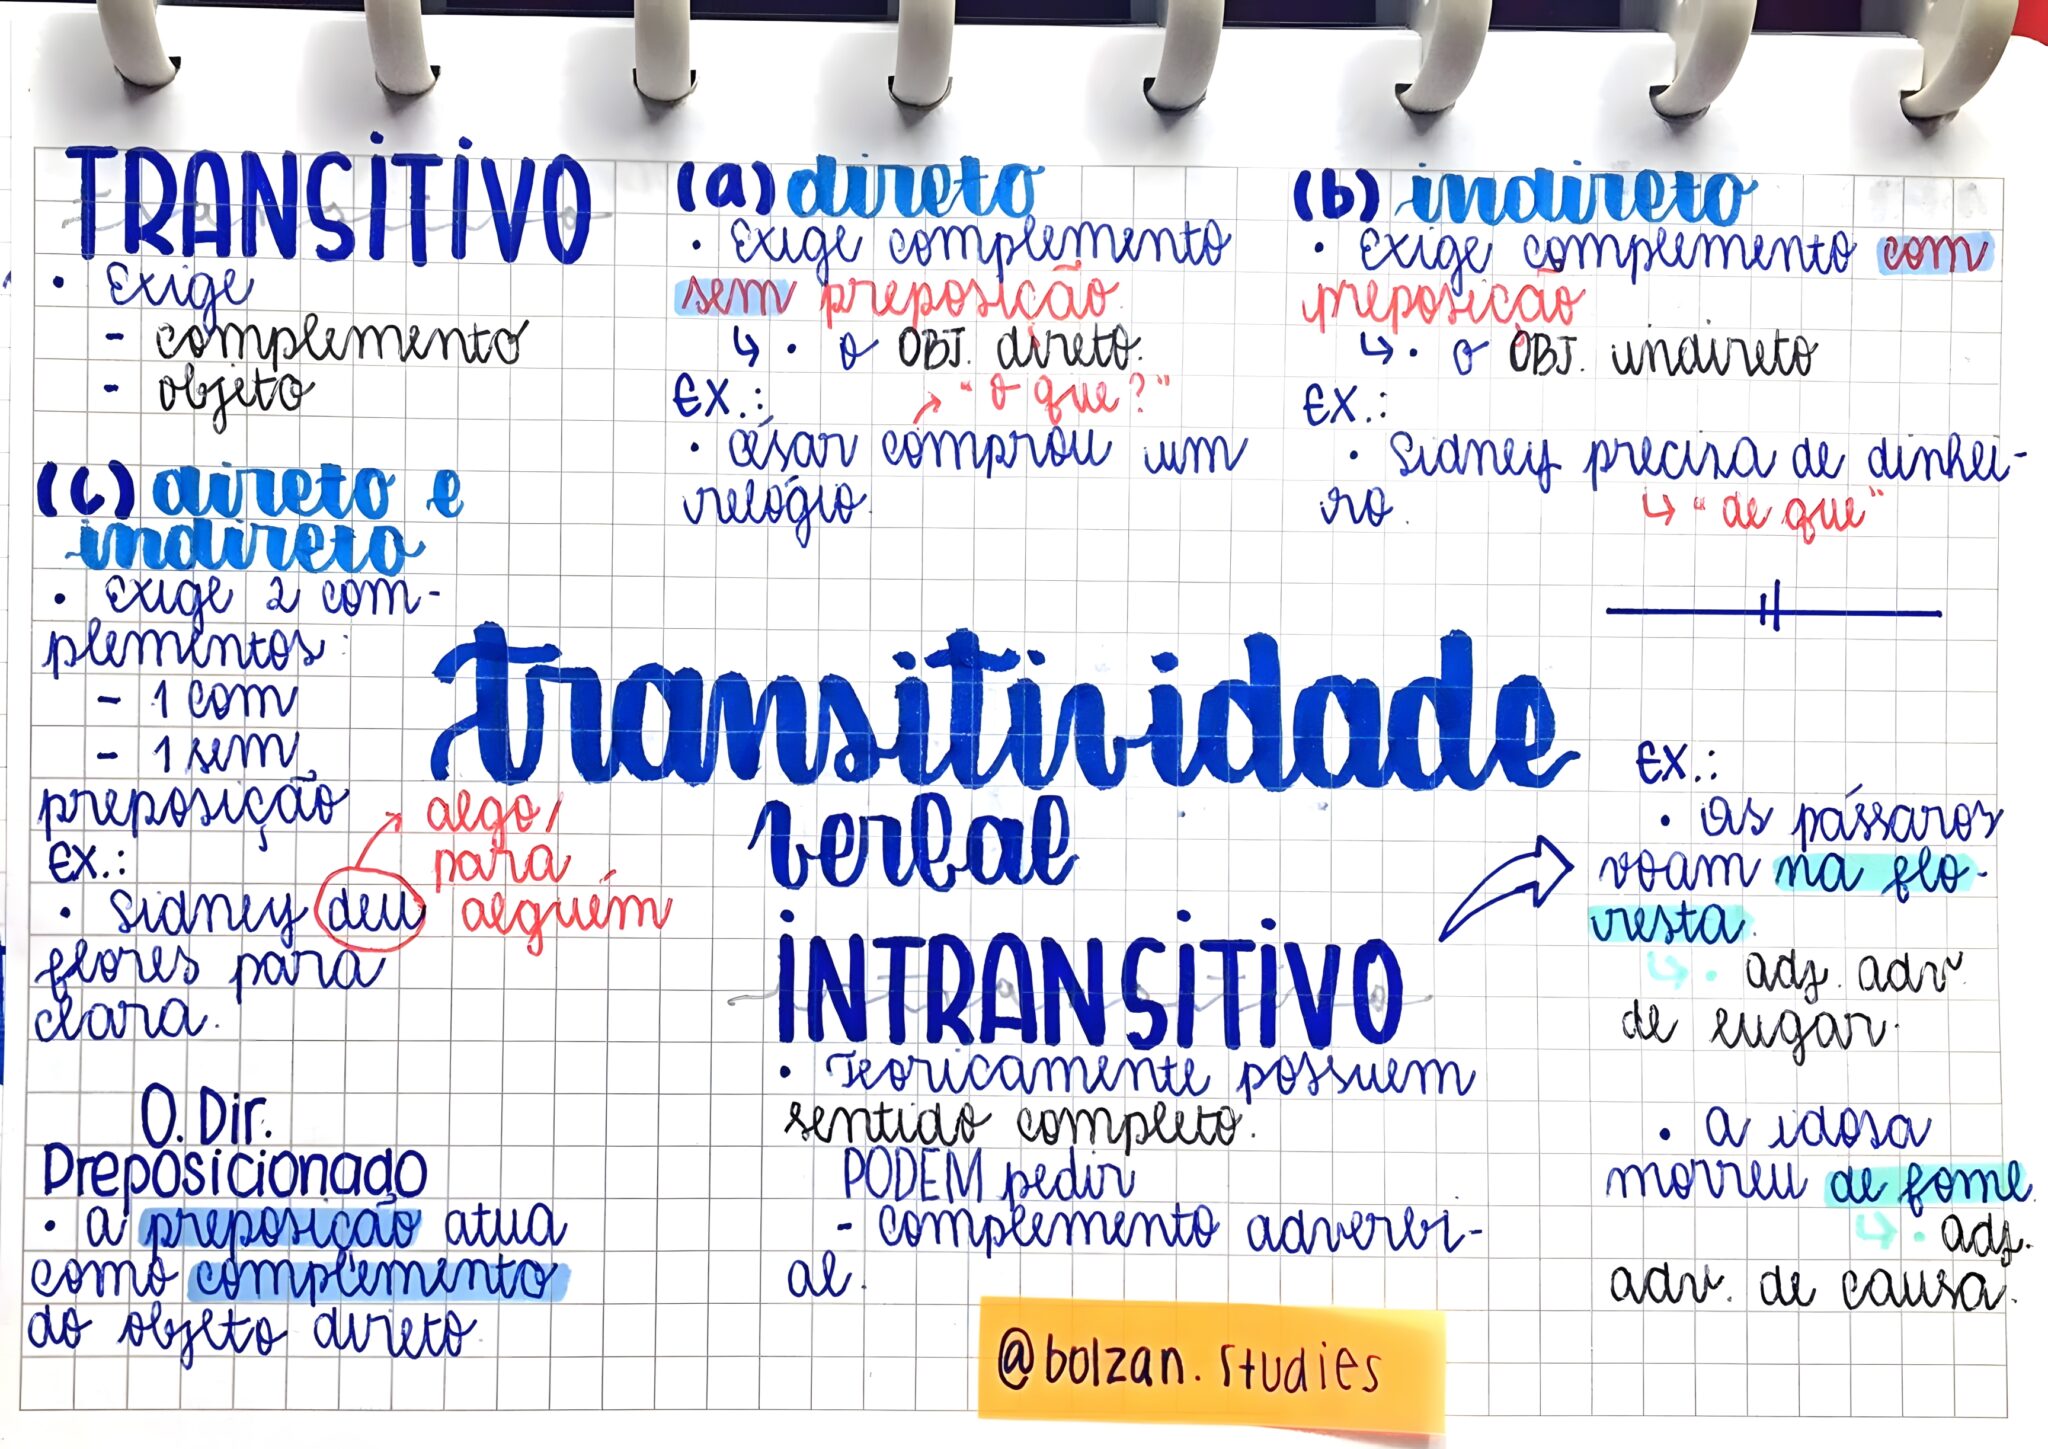 TRANSITIVO
• Exige
- complemento
- objeto
(a) direto
• Exige complemento
sem preposição
↳ • o OBJ. direto.
EX.: "o que?"
• César comprou um
relógio.
(b) indireto
• Exige complemento com
preposição
↳ • o OBJ. indireto
EX.:
• Sidney precisa de dinhei-
ro.
↳ "de que"
(c) direto e
indireto
• Exige 2 com-
plementos:
- 1 com
- 1 sem
preposição
EX.:
• Sidney deu
flores para
Clara.
algo/
para
alguém
transitividade
verbal
O. Dir.
Preposicionado
• a preposição atua
como complemento
do objeto direto
INTRANSITIVO
• Teoricamente possuem
sentido completo.
PODEM pedir
- complemento adverbi-
al.
EX.:
• Os pássaros
voam na flo-
resta.
↳ • adj. adv.
de lugar.
• A idosa
morreu de fome.
↳ • adj.
adv. de causa.
@bolzan.studies